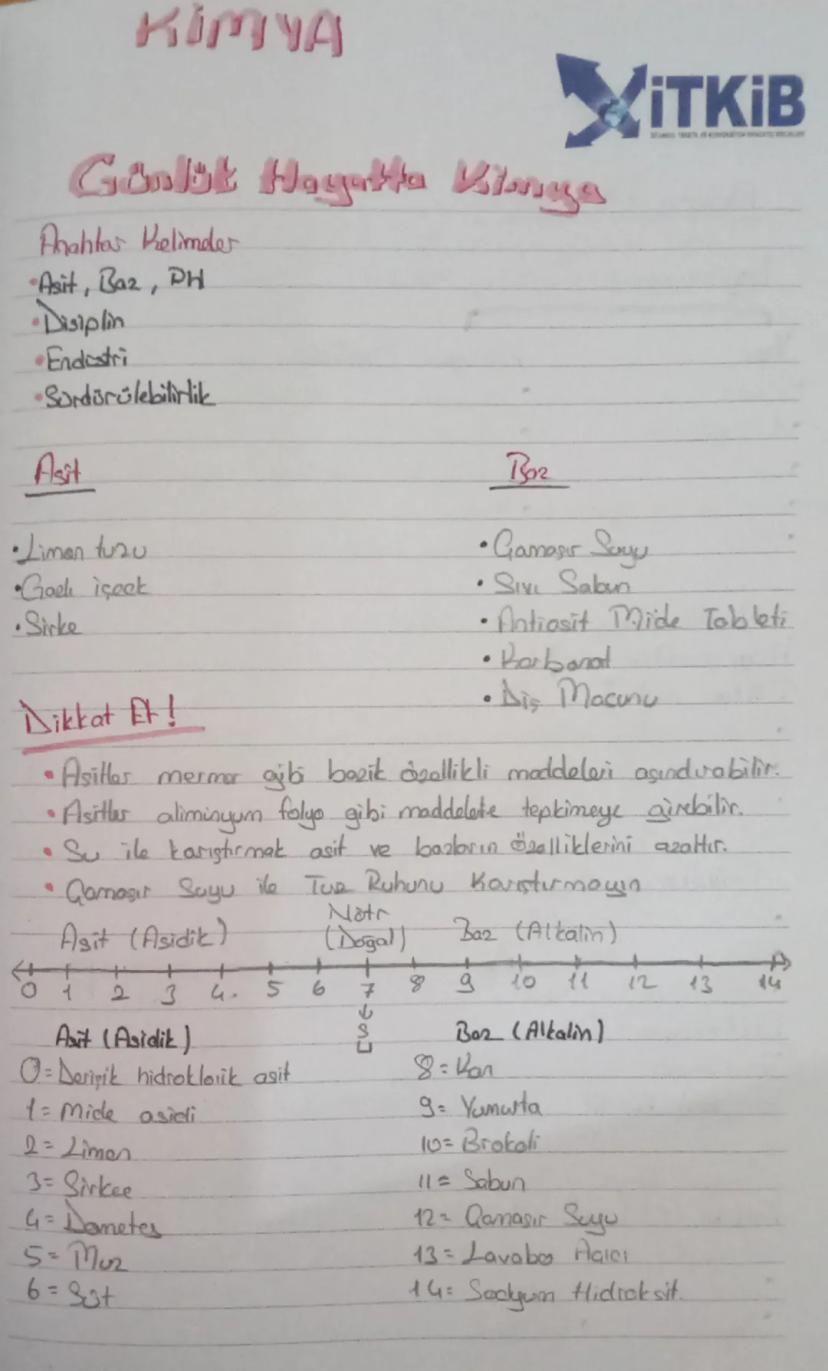 KİMYA
İTKİB
Günlük Hayatta Kimya
Anahtar Kelimeler
•Asit, Baz, PH
•Disiplin
•Endüstri
•Sürdürülebilirlik
Asit
Baz
•Limon tuzu
•Gazlı içecek
•Sirke
•Çamaşır Suyu
•Sıvı Sabun
•Antiasit Mide Tableti
•Karbonat
•Diş Macunu
Dikkat Et!
•Asitler mermer gibi bazik özellikli maddeleri aşındırabilir.
•Asitler aliminyum folyo gibi maddelerle tepkimeye girebilir.
•Su ile karıştırmak asit ve bazların özelliklerini azaltır.
•Çamaşır Suyu ile Tuz Ruhunu Karıştırmayın
Asit (Asidik) Nötr (Doğal) Baz (Alkalin)
0 1 2 3 4. 5 6 7 8 9 10 11 12 13 14
SU
Asit (Asidik)
0=Derişik hidroklorik asit
1=Mide asidi
2=Limon
3=Sirkee
4=Dometes
5=Muz
6=Süt
Baz (Alkalin)
8=Kan
9=Yumurta
10=Brokoli
11=Sabun
12=Çamaşır Suyu
13=Lavabo Açıcı
14=Sodyum Hidroksit.